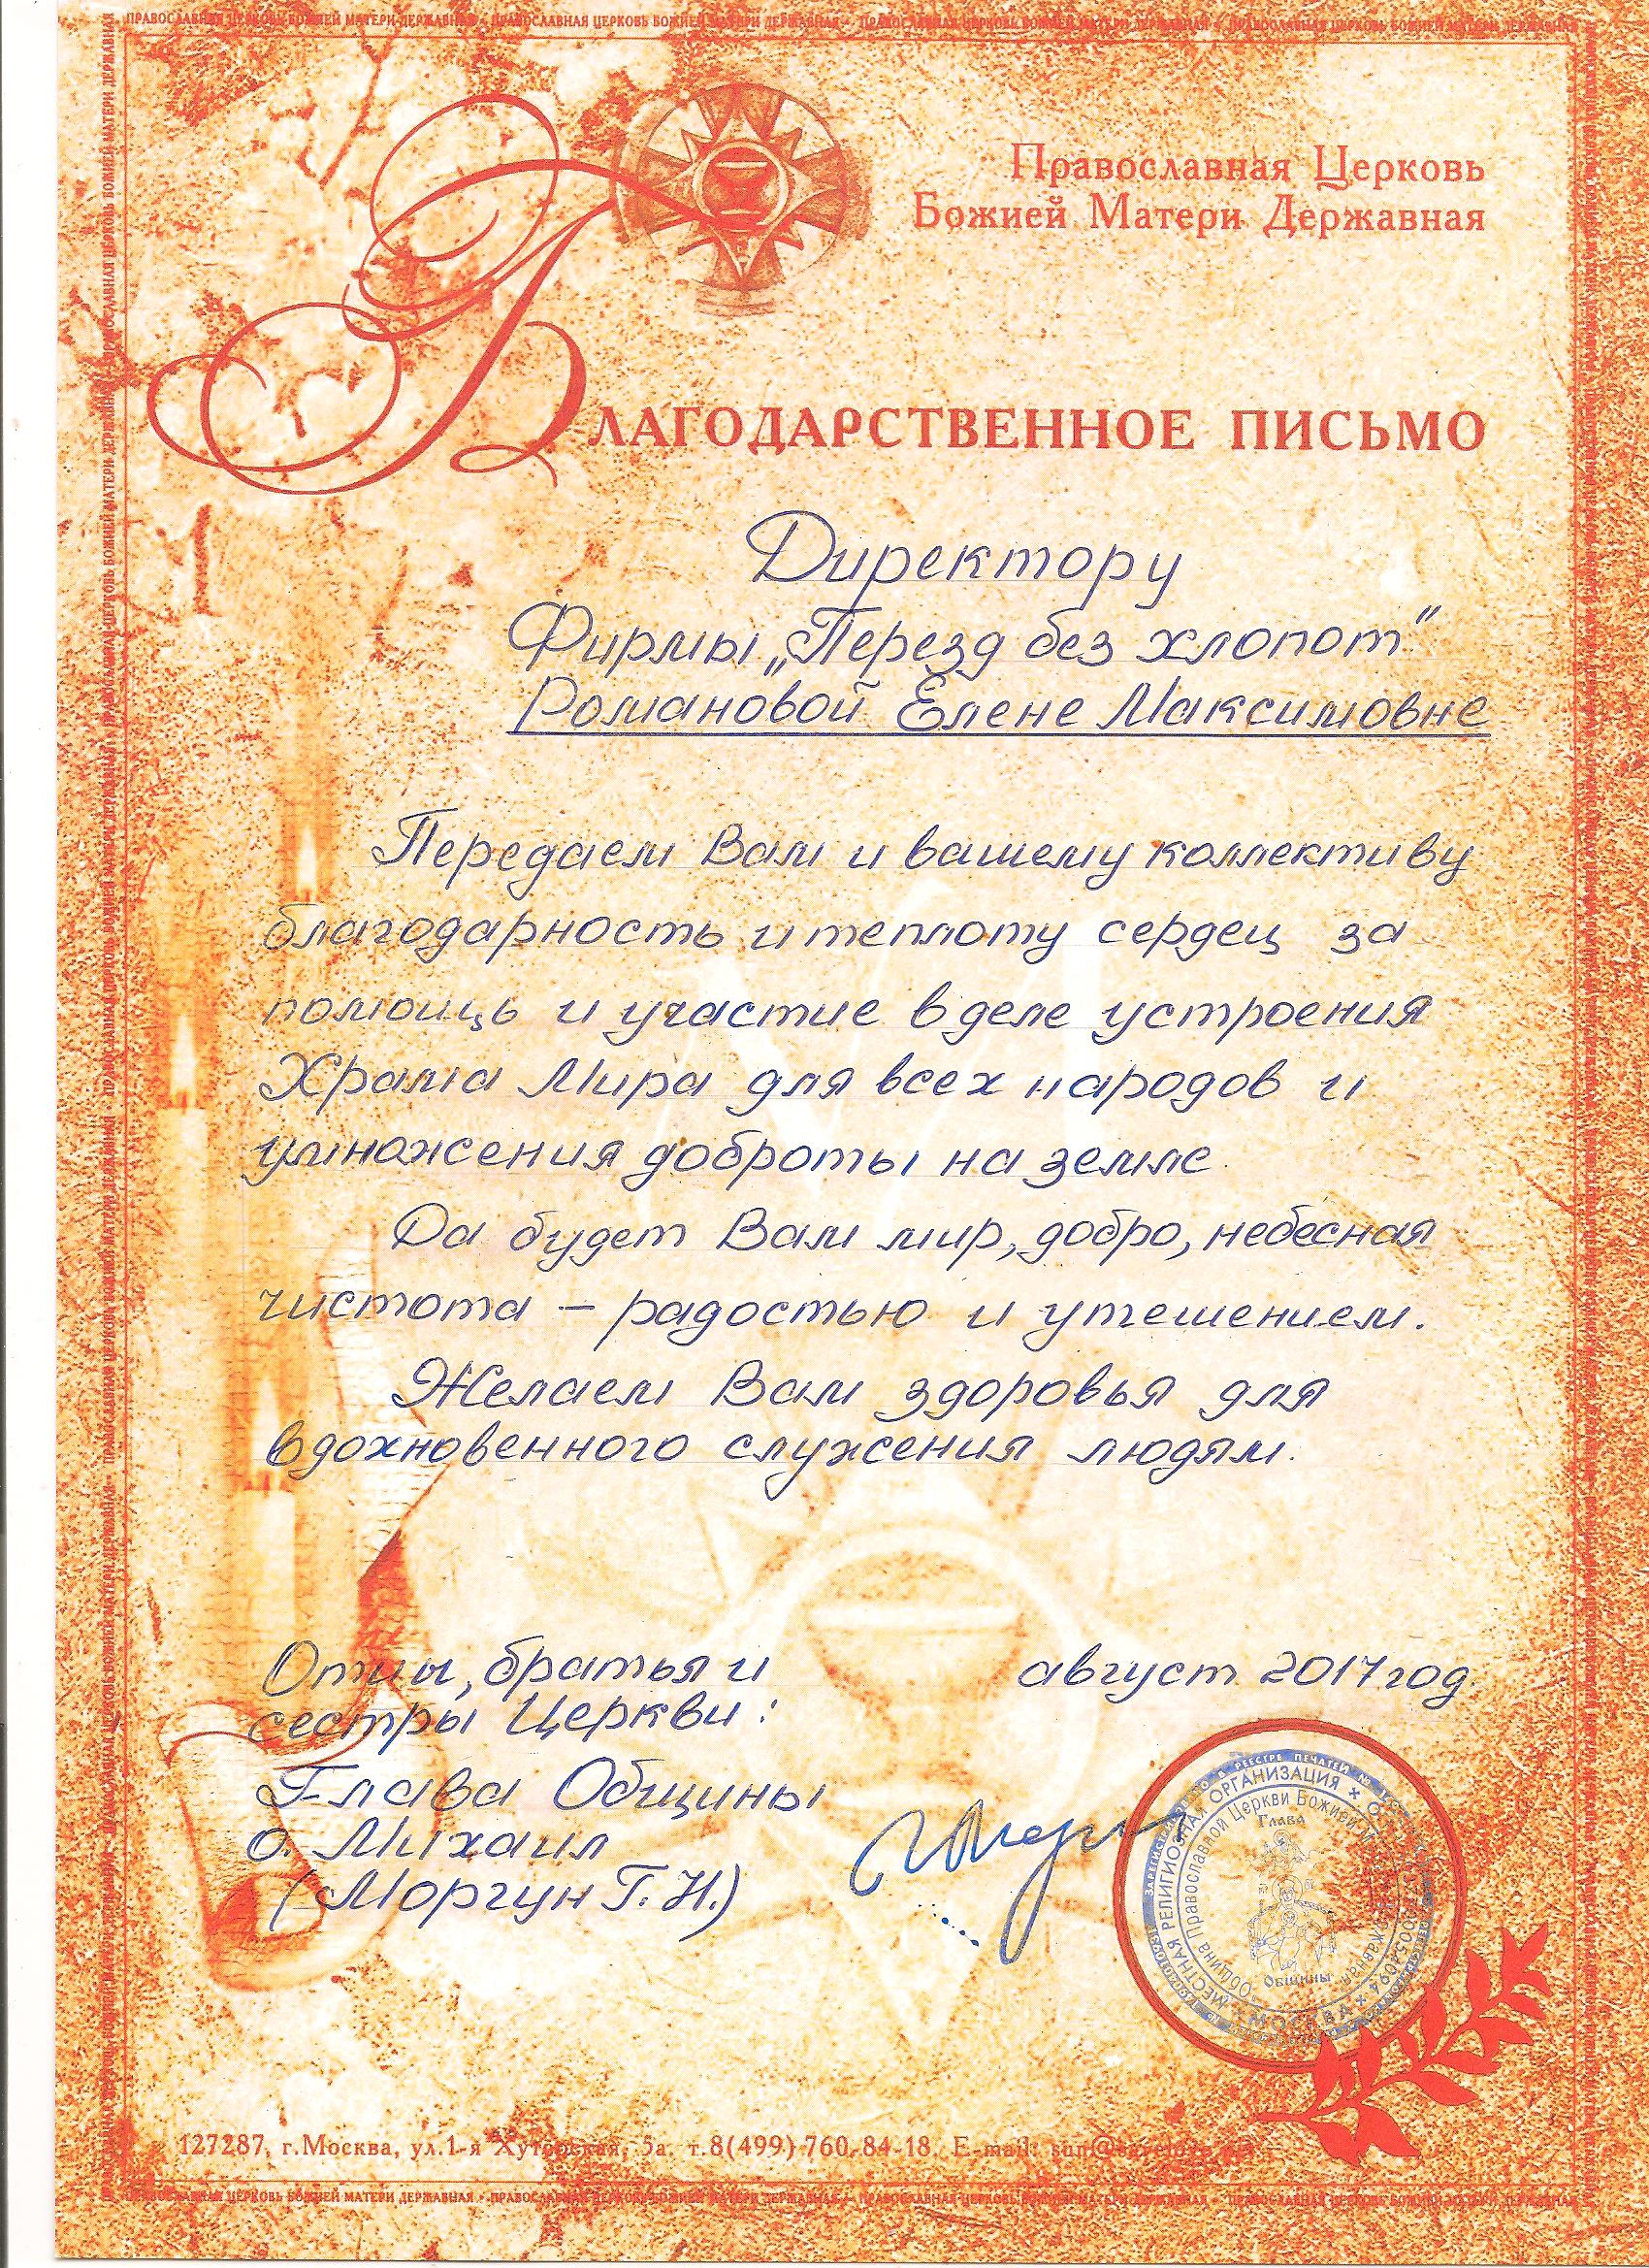 ПРАВОСЛАВНАЯ ЦЕРКОВЬ БОЖИЕЙ МАТЕРИ ДЕРЖАВНАЯ • ПРАВОСЛАВНАЯ ЦЕРКОВЬ БОЖИЕЙ МАТЕРИ ДЕРЖАВНАЯ • ПРАВОСЛАВНАЯ ЦЕРКОВЬ БОЖИЕЙ МАТЕРИ ДЕРЖАВНАЯ • ПРАВОСЛАВНАЯ ЦЕРКОВЬ БОЖИЕЙ МАТЕРИ ДЕРЖАВНАЯ
Православная Церковь
Божией Матери Державная
БЛАГОДАРСТВЕННОЕ ПИСЬМО
Директору
Фирмы „Перезд без хлопот"
Романовой Елене Максимовне
Передаем Вам и вашему коллективу
благодарность и теплоту сердец за
помощь и участие в деле устроения
Храма Мира для всех народов и
умножения доброты на земле.
Да будет Вам мир, добро, небесная
чистота – радостью и утешением.
Желаем Вам здоровья для
вдохновенного служения людям.
Отцы, братья и
сестры Церкви:
август 2017 год.
Глава Общины
о. Михаил
(Моргун Г.Н.)
МЕСТНАЯ РЕЛИГИОЗНАЯ ОРГАНИЗАЦИЯ
Община Православной Церкви Божией Матери Державная
Глава
Общины
МОСКВА
127287, г.Москва, ул.1-я Хуторская, 5а. т.8(499) 760-84-18. E-mail:
ПРАВОСЛАВНАЯ ЦЕРКОВЬ БОЖИЕЙ МАТЕРИ ДЕРЖАВНАЯ • ПРАВОСЛАВНАЯ ЦЕРКОВЬ БОЖИЕЙ МАТЕРИ ДЕРЖАВНАЯ • ПРАВОСЛАВНАЯ ЦЕРКОВЬ БОЖИЕЙ МАТЕРИ ДЕРЖАВНАЯ • ПРАВОСЛАВНАЯ ЦЕРКОВЬ БОЖИЕЙ МАТЕРИ ДЕРЖАВНАЯ